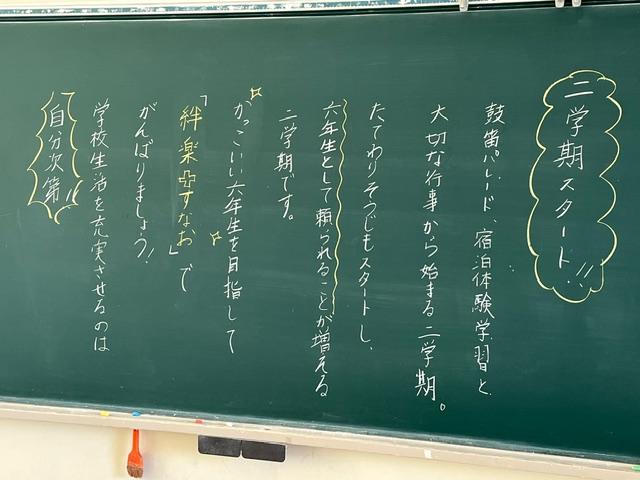 二学期スタート!!
鼓笛パレード、宿泊体験学習と
大切な行事から始まる二学期。
たてわりそうじもスタートし、
六年生として頼られることが増える
二学期です。
かっこいい六年生を目指して
「絆楽中すなお」で
がんばりましょう!
学校生活を充実させるのは
自分次第!!